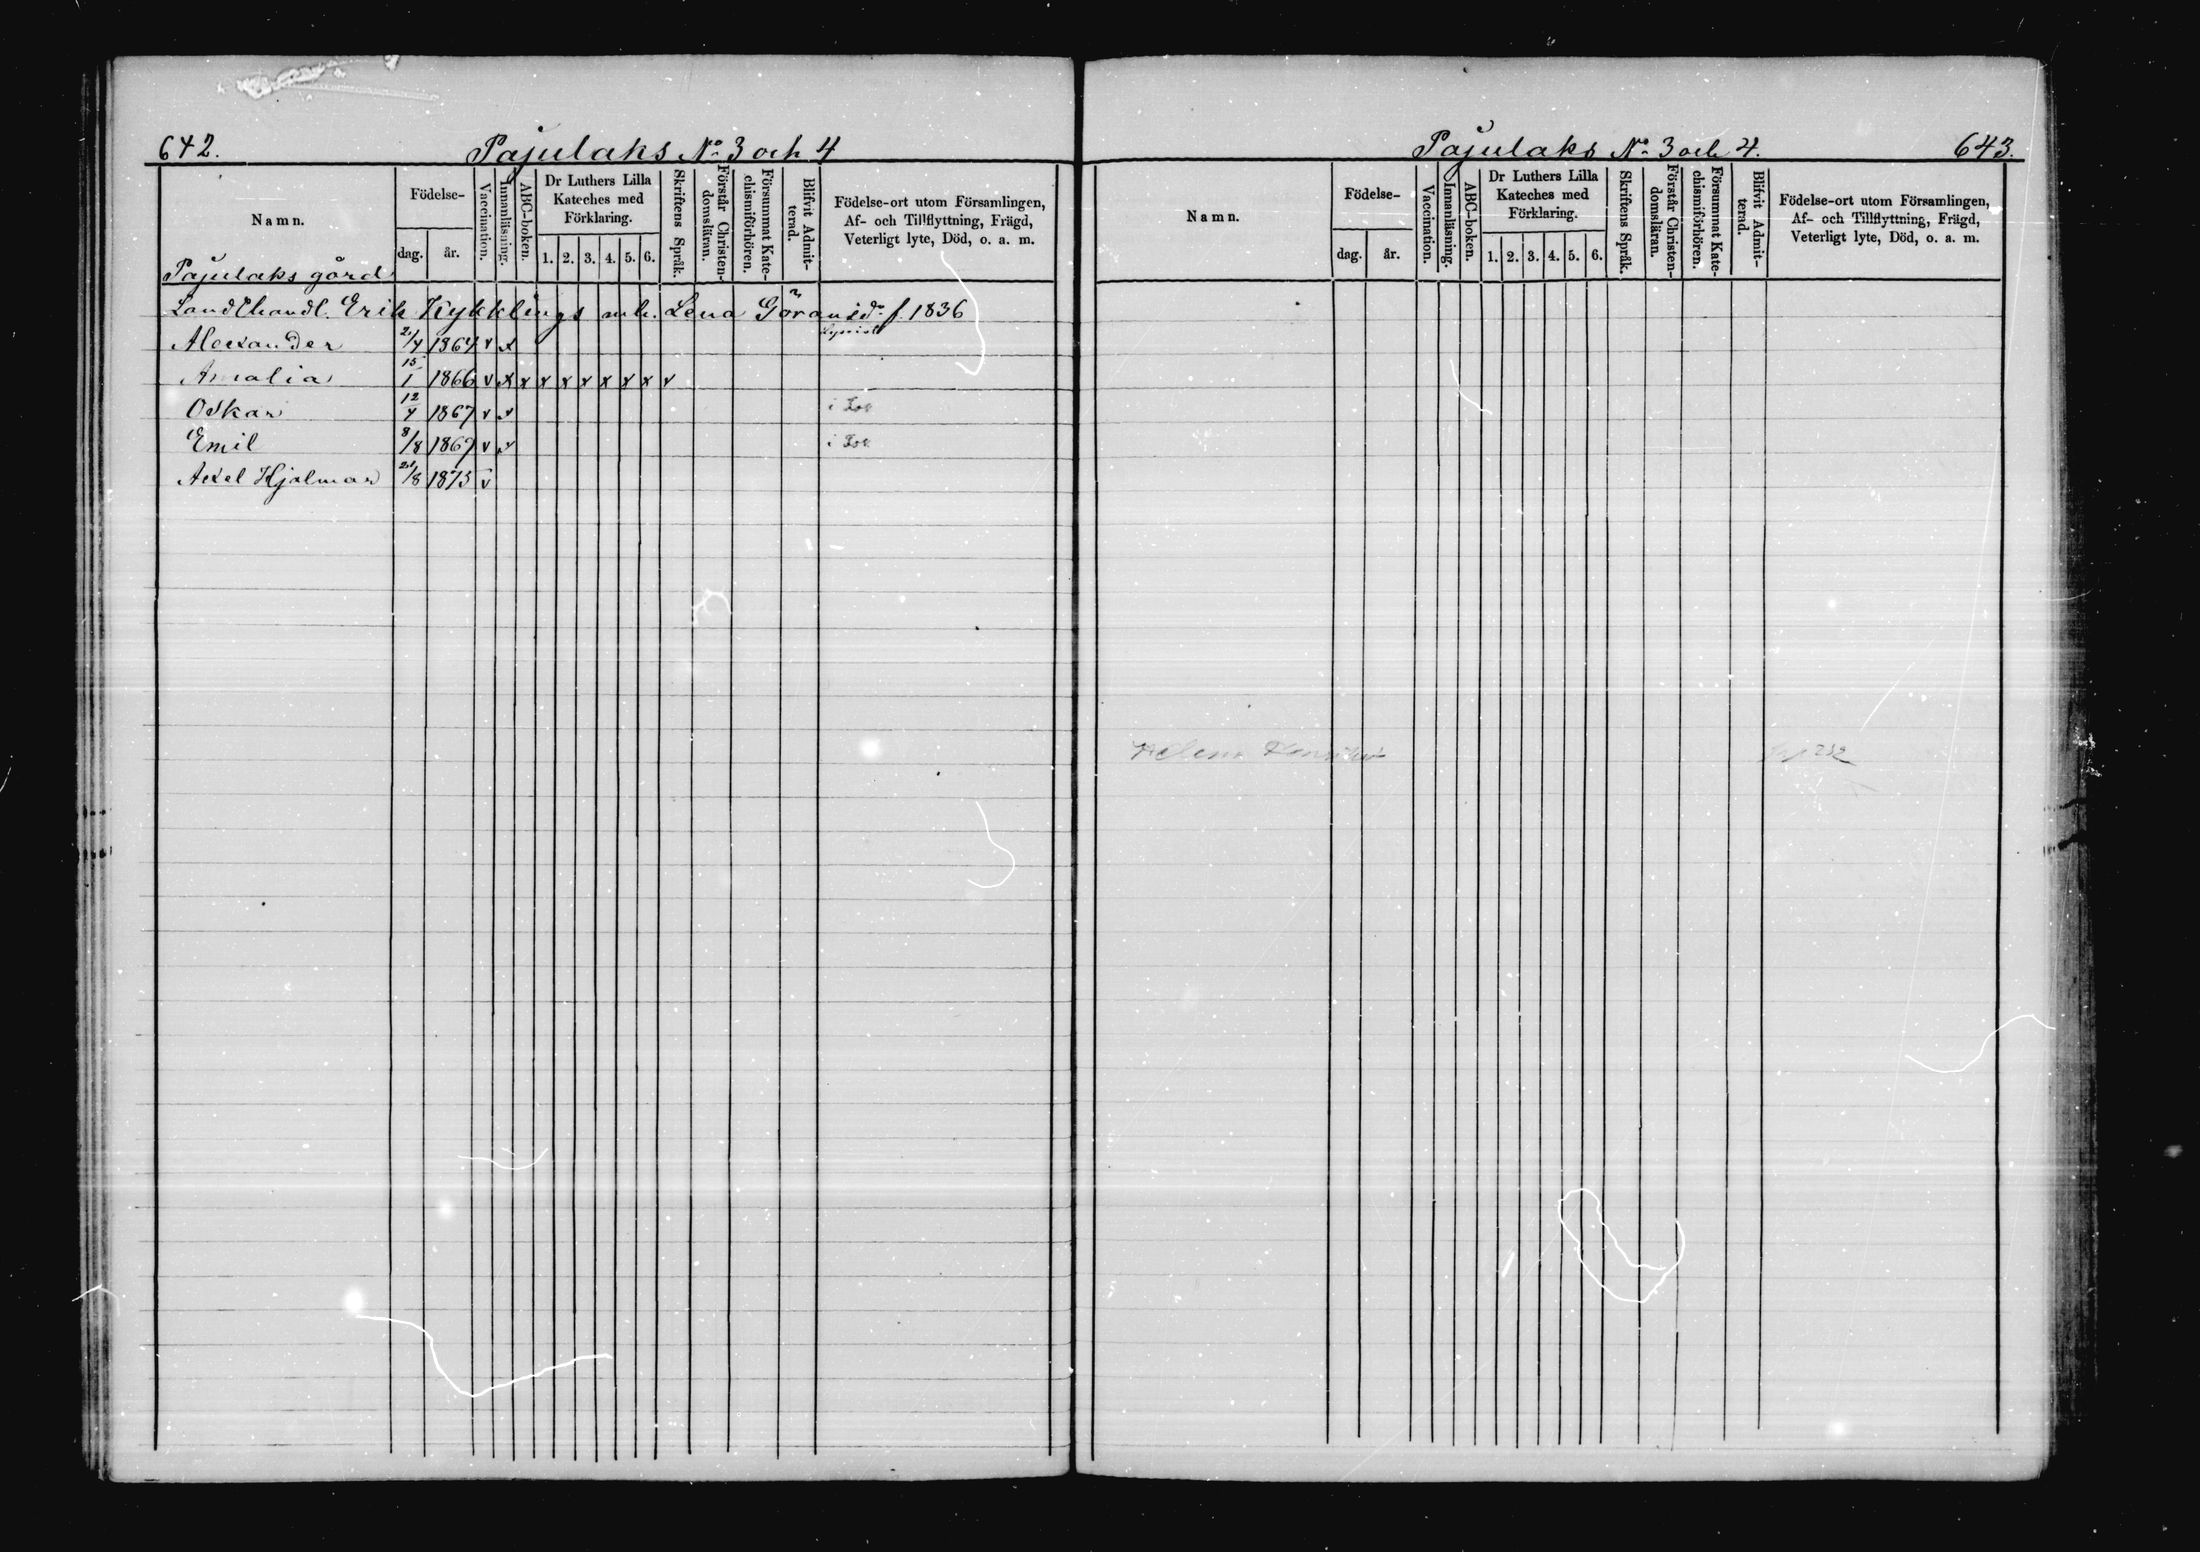 642.
Pajulaks No 3 och 4
Namn.
Födelse-
dag.
år.
Vaccination.
Innanläsning.
ABC-boken.
Dr Luthers Lilla
Kateches med
Förklaring.
1. 2. 3. 4. 5. 6.
Skriftens Språk.
Förstår Christen-
domsläran.
Försummat Kate-
chismiförhören.
Blifvit Admit-
terad.
Födelse-ort utom Församlingen,
Af- och Tillflyttning, Frägd,
Veterligt lyte, Död, o. a. m.
Pajulaks gård
Landthandl. Erik Kykklings enk. Lena Göransdr f. 1836
Alexander 21/4 1864 v x
Amalia 15/1 1866 v x x x x x x x x v
Oskar 12/4 1867 v x
Emil 8/8 1869 v x
Axel Hjalmar 21/8 1873 v
Pajulaks No 3 och 4.
643.
Namn.
Födelse-
dag.
år.
Vaccination.
Innanläsning.
ABC-boken.
Dr Luthers Lilla
Kateches med
Förklaring.
1. 2. 3. 4. 5. 6.
Skriftens Språk.
Förstår Christen-
domsläran.
Försummat Kate-
chismiförhören.
Blifvit Admit-
terad.
Födelse-ort utom Församlingen,
Af- och Tillflyttning, Frägd,
Veterligt lyte, Död, o. a. m.
Helena 252